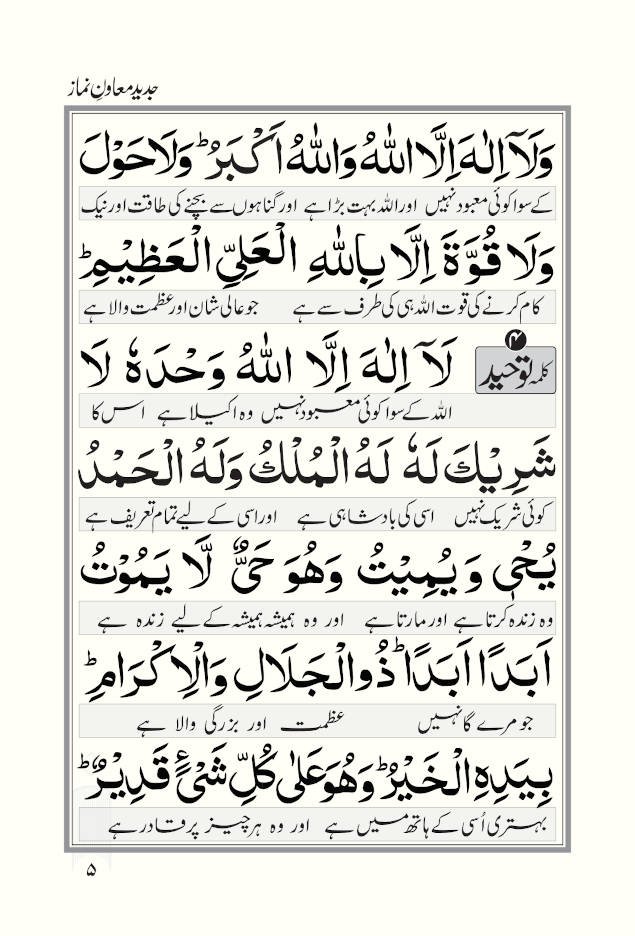 جدید معاونِ نماز
وَلَآ اِلٰهَ اِلَّا اللّٰهُ وَاللّٰهُ اَكْبَرُ ؕ وَلَا حَوْلَ
کے سوا کوئی معبود نہیں اور اللہ بہت بڑا ہے اور گناہوں سے بچنے کی طاقت اور نیک
وَلَا قُوَّةَ اِلَّا بِاللّٰهِ الْعَلِیِّ الْعَظِیْمِ ؕ
کام کرنے کی قوت اللہ ہی کی طرف سے ہے جو عالی شان اور عظمت والا ہے
۴
کلمہ توحید لَآ اِلٰهَ اِلَّا اللّٰهُ وَحْدَهٗ لَا
اللہ کے سوا کوئی معبود نہیں وہ اکیلا ہے اس کا
شَرِیْكَ لَهٗ لَهُ الْمُلْكُ وَلَهُ الْحَمْدُ
کوئی شریک نہیں اسی کی بادشاہی ہے اور اسی کے لیے تمام تعریف ہے
یُحْیٖ وَ یُمِیْتُ وَهُوَ حَیٌّ لَّا یَمُوْتُ
وہ زندہ کرتا ہے اور مارتا ہے اور وہ ہمیشہ ہمیشہ کے لیے زندہ ہے
اَبَدًا اَبَدًا ؕ ذُو الْجَلَالِ وَالْاِكْرَامِ ؕ
جو مرے گا نہیں عظمت اور بزرگی والا ہے
بِیَدِهِ الْخَیْرُ ؕ وَهُوَ عَلٰی كُلِّ شَیْءٍ قَدِیْرٌ ؕ
بہتری اُسی کے ہاتھ میں ہے اور وہ ہر چیز پر قادر ہے
۵